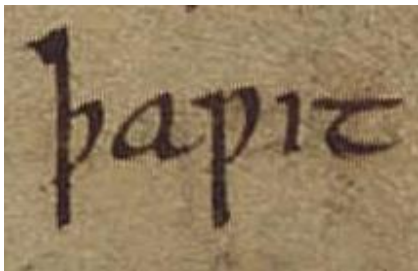 þaƿit